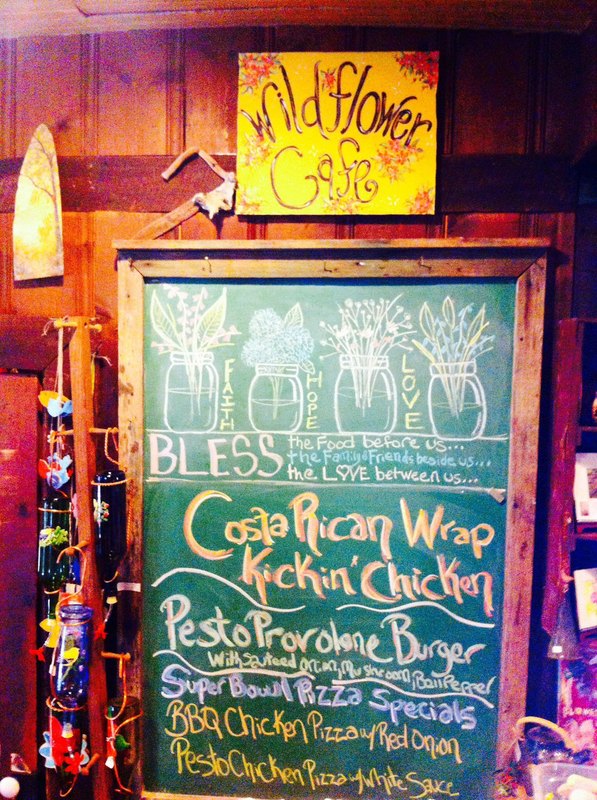 Wildflower
Cafe
FAITH
HOPE
LOVE
BLESS
the Food before us...
the Family & Friends beside us...
the LOVE between us...
Costa Rican Wrap
Kickin' Chicken
Pesto Provolone Burger
with Sauteed Onion, Mushroom, Bell Pepper
Super Bowl Pizza Specials
BBQ Chicken Pizza w/ Red Onion
Pesto Chicken Pizza w/ White Sauce